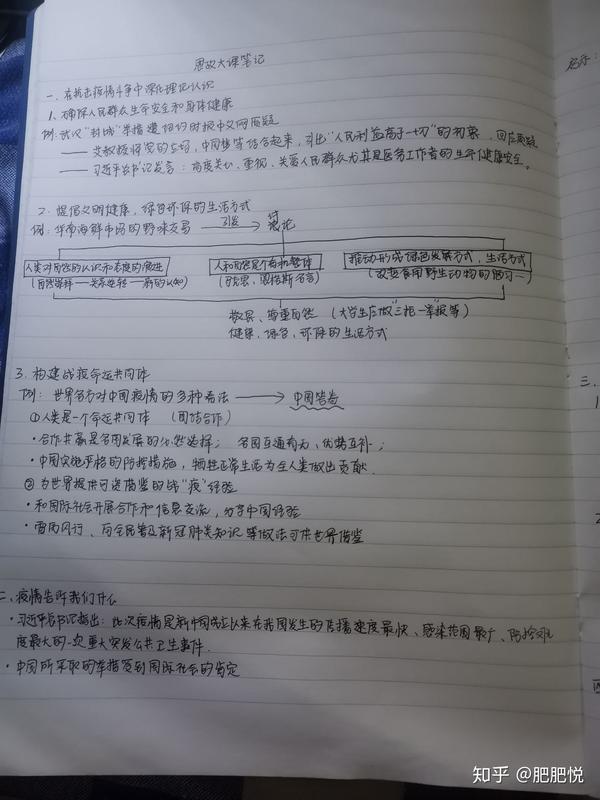 思政大课笔记
名称:
一、在抗击疫情斗争中深化理论认识
1、确保人民群众生命安全和身体健康
例:武汉"封城"举措遭纽约时报中文网质疑
—— 艾教授将家的, 中国梦等结合起来, 引出"人民利益高于一切"的初衷, 回应质疑
—— 习近平总书记发言:高度关心、重视、关爱人民群众尤其是医务工作者的生命健康安全。
2、提倡文明健康、绿色环保的生活方式
例:华南海鲜市场的野味交易 引发 → 讨论
人类对自然的认识和态度的演进
(自然崇拜——关系逆转——新的认知)
人和自然是个有机整体
(马克思、恩格斯名言)
推动形成绿色发展方式、生活方式
(改变食用野生动物的陋习…)
敬畏、尊重自然 (大学生应做"三拒一举"报等)
健康、绿色、环保的生活方式
3、构建战疫命运共同体
例:世界各方对中国疫情的多种看法 → 中国答卷
①人类是一个命运共同体 (团结合作)
·合作共赢是各国发展的必然选择; 各国互通有无、优势互补;
·中国实施严格的防控措施, 牺牲正常生活为全人类做出贡献.
②为世界提供可资借鉴的战"疫"经验
·和国际社会开展合作和信息交流, 分享中国经验
·雷厉风行、向全民普及新冠肺炎知识等做法可供世界借鉴
二、疫情告诉我们什么
·习近平总书记指出:此次疫情是新中国成立以来在我国发生的传播速度最快、感染范围最广、防控难
度最大的一次重大突发公共卫生事件.
·中国所采取的举措受到国际社会的肯定
三、
1、
知乎 @肥肥悦